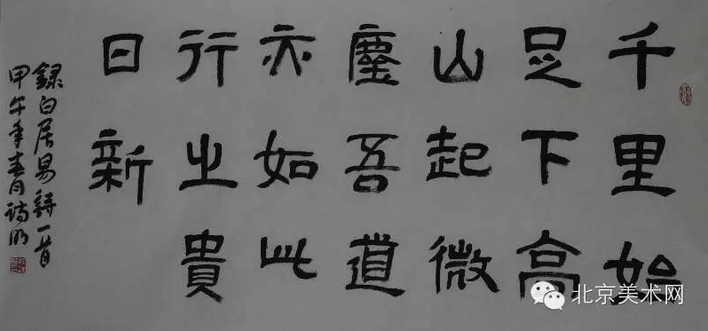 千里始
足下高
山起微
塵吾道
亦如此
行之貴
日新
録白居易詩一首
甲午年春月詩明
北京美术网